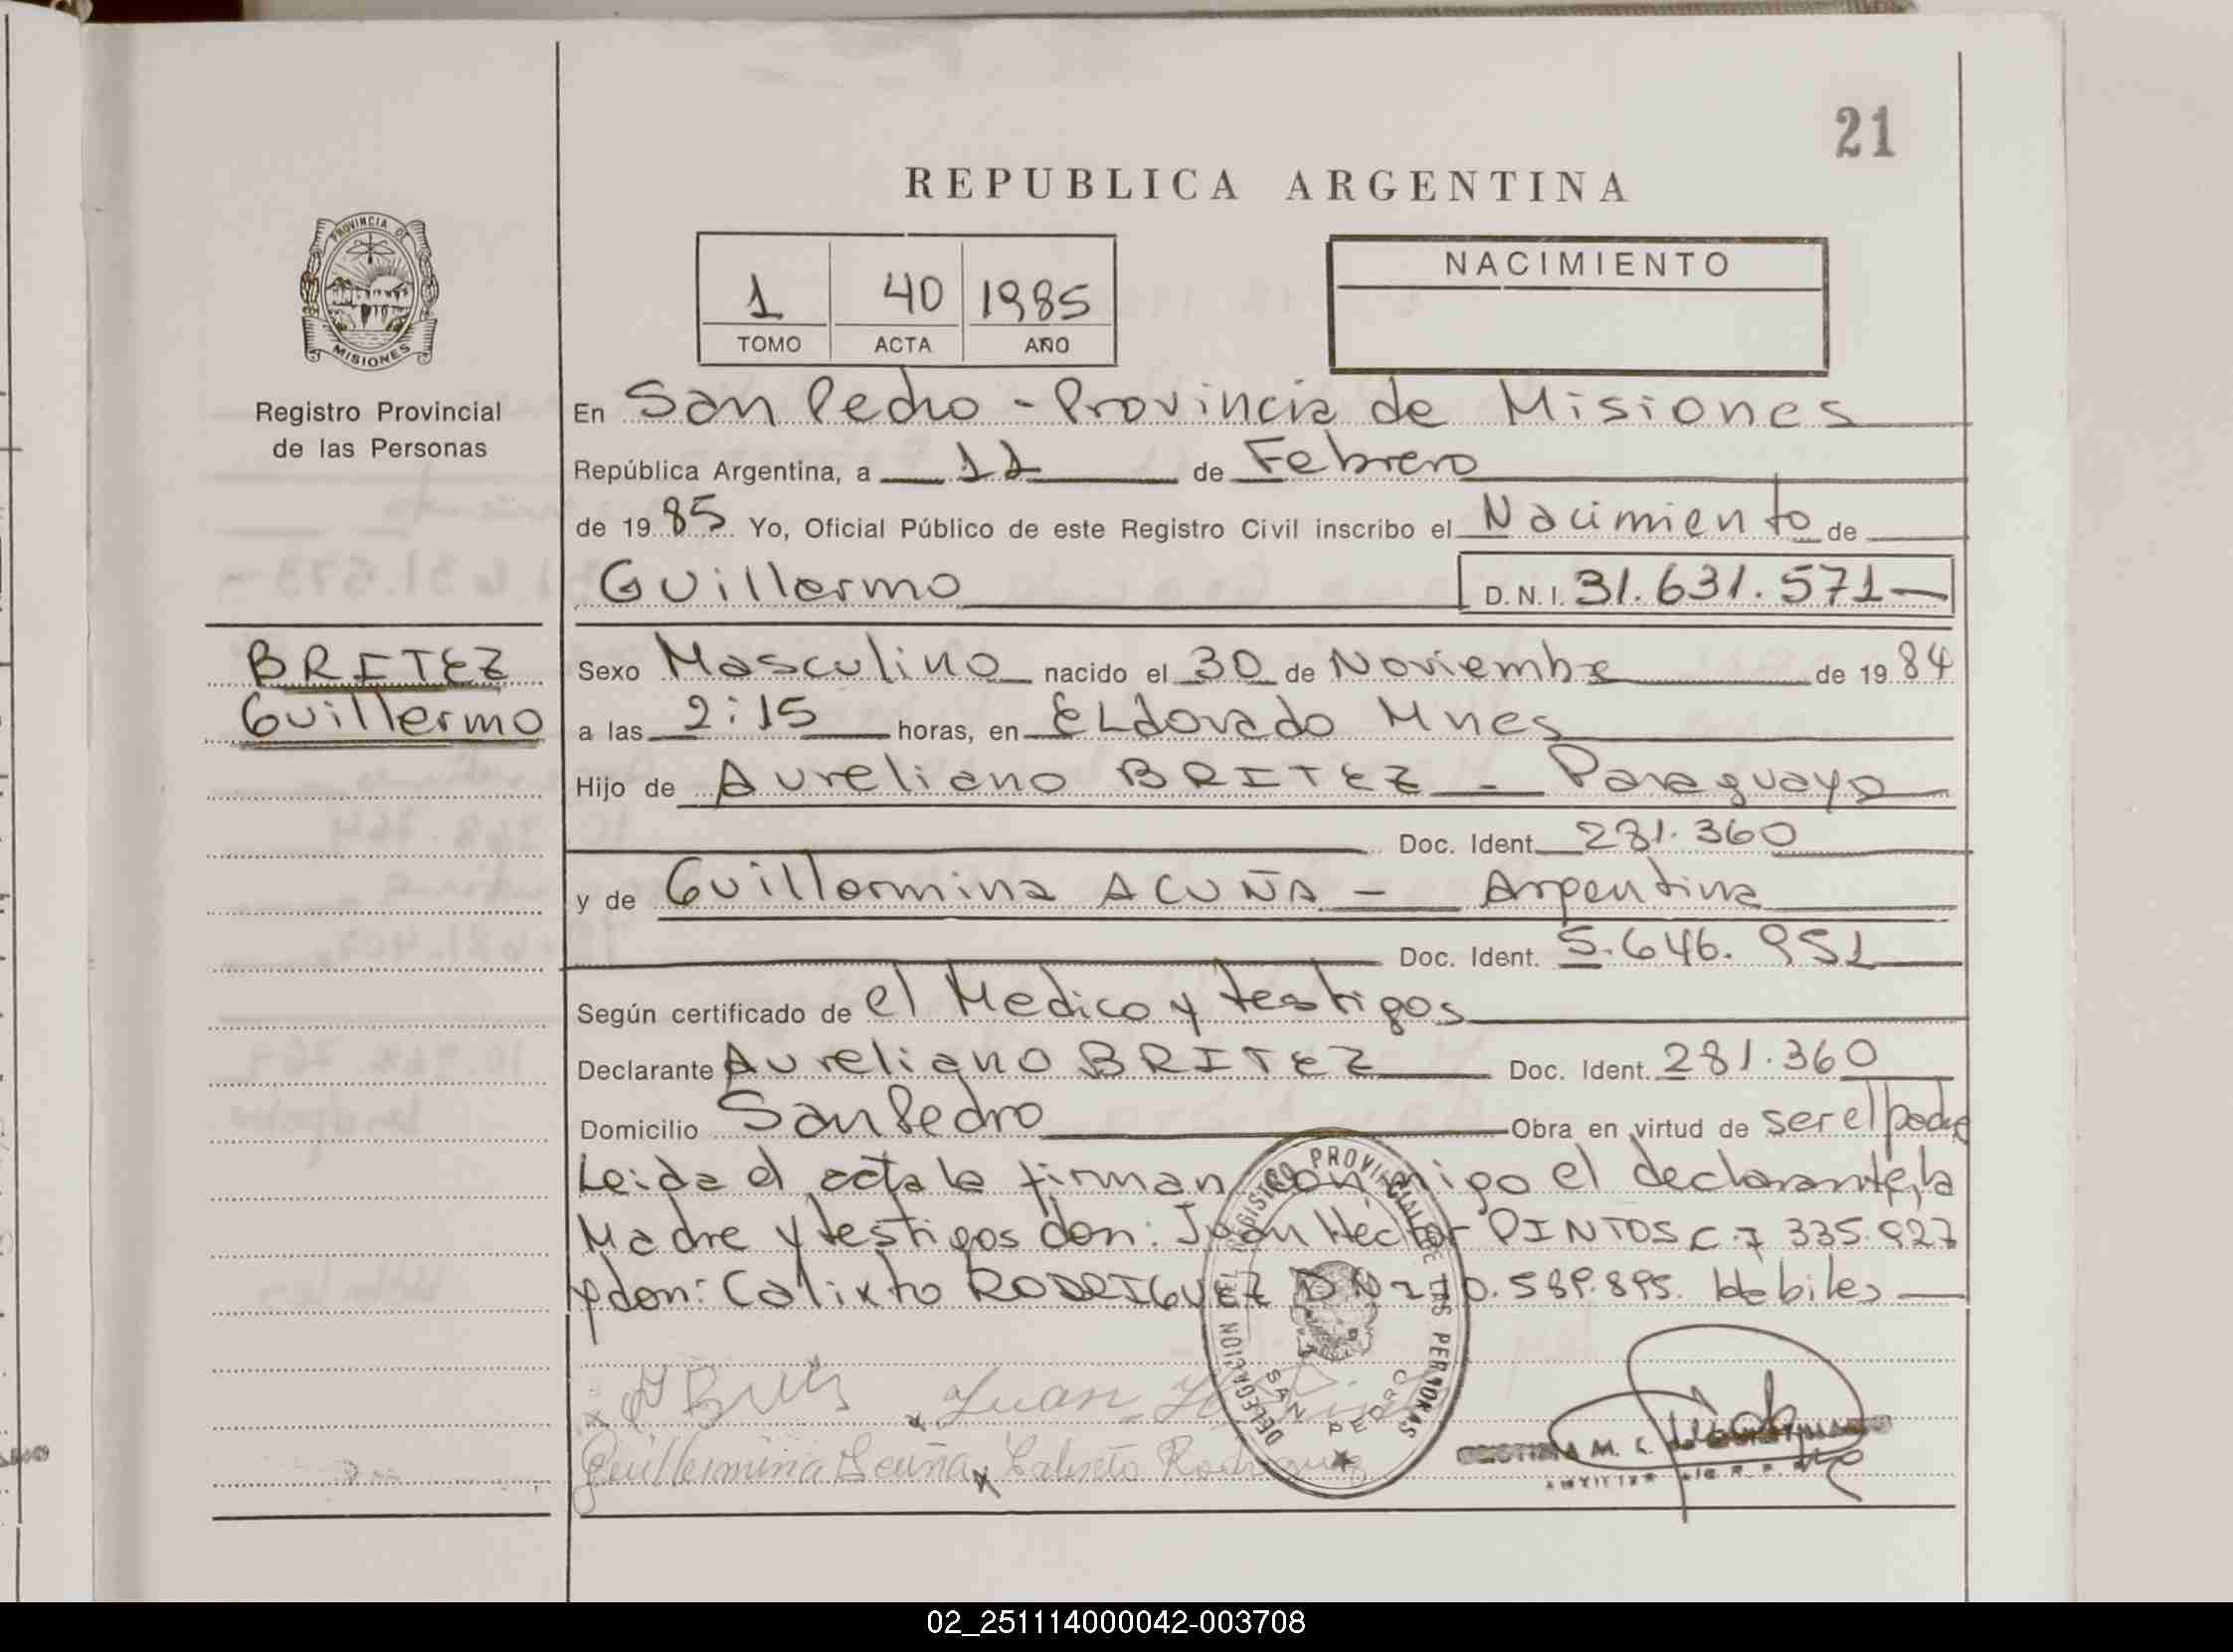 21
REPUBLICA ARGENTINA
PROVINCIA DE
MISIONES
1 40 1985
TOMO ACTA AÑO
NACIMIENTO
Registro Provincial
de las Personas
En San Pedro - Provincia de Misiones
República Argentina, a 11 de Febrero
de 1985 Yo, Oficial Público de este Registro Civil inscribo el Nacimiento de
Guillermo D.N.I. 31.631.571
BRITEZ
Guillermo
Sexo Masculino nacido el 30 de Noviembre de 1984
a las 2:15 horas, en ELdorado Mnes
Hijo de Aureliano BRITEZ - Paraguayo
Doc. Ident. 281.360
y de Guillermina ACUÑA - Argentina
Doc. Ident. 5.646.951
Según certificado de el Medico y testigos
Declarante Aureliano BRITEZ Doc. Ident. 281.360
Domicilio San Pedro Obra en virtud de ser el padre
Leida el acta la firman conmigo el declarante, la
Madre y testigos don: Juan Héctor PINTOS C.7 335.927
y don: Calixto RODRIGUEZ DNI 10.589.895. Habiles
DELEGACION DEL REGISTRO PROVINCIAL DE LAS PERSONAS
SAN PEDRO
Juan
Guillermina Acuña Calixto Rodriguez
M.
02_251114000042-003708